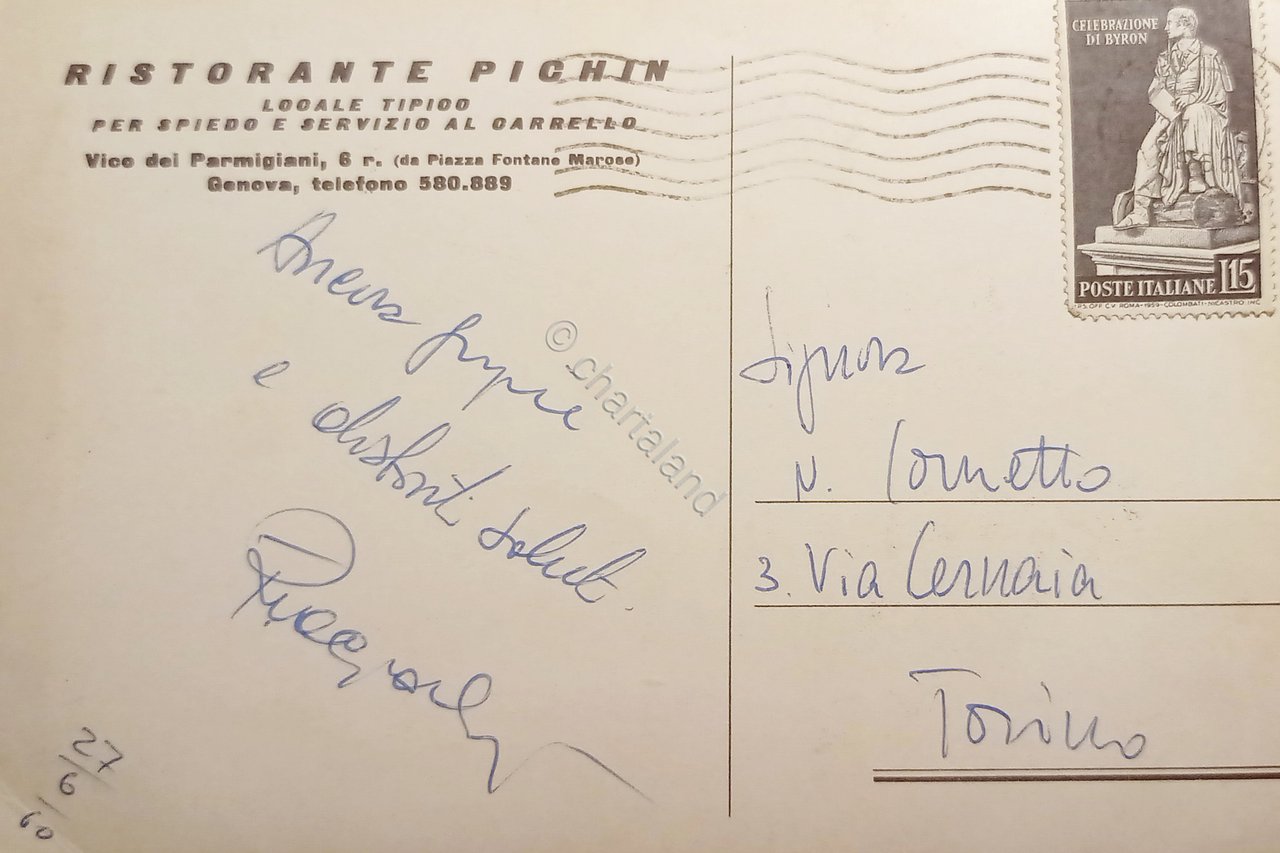 RISTORANTE PICHIN
LOCALE TIPICO
PER SPIEDO E SERVIZIO AL CARRELLO
Vico dei Parmigiani, 6 r. (da Piazza Fontane Marose)
Genova, telefono 580.889
CELEBRAZIONE
DI BYRON
POSTE ITALIANE L15
I.P.S. OFF. C.V. ROMA-1959-COLOMBATI-NICASTRO INC.
Ancora
e distinti saluti.
27
6
60
© chartaland
Signora
N. Cornetto
3. Via Cernaia
Torino